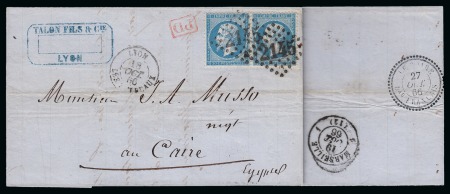 TALON FILS & CIE
LYON
PD
LYON
18
OCT
66
TERREAUX
EMPIRE FRANC
2145
27
OCT
66
Monsieur J. A. Musso
negt
au Caire
Egypte
MARSEILLE
19
OCT
66